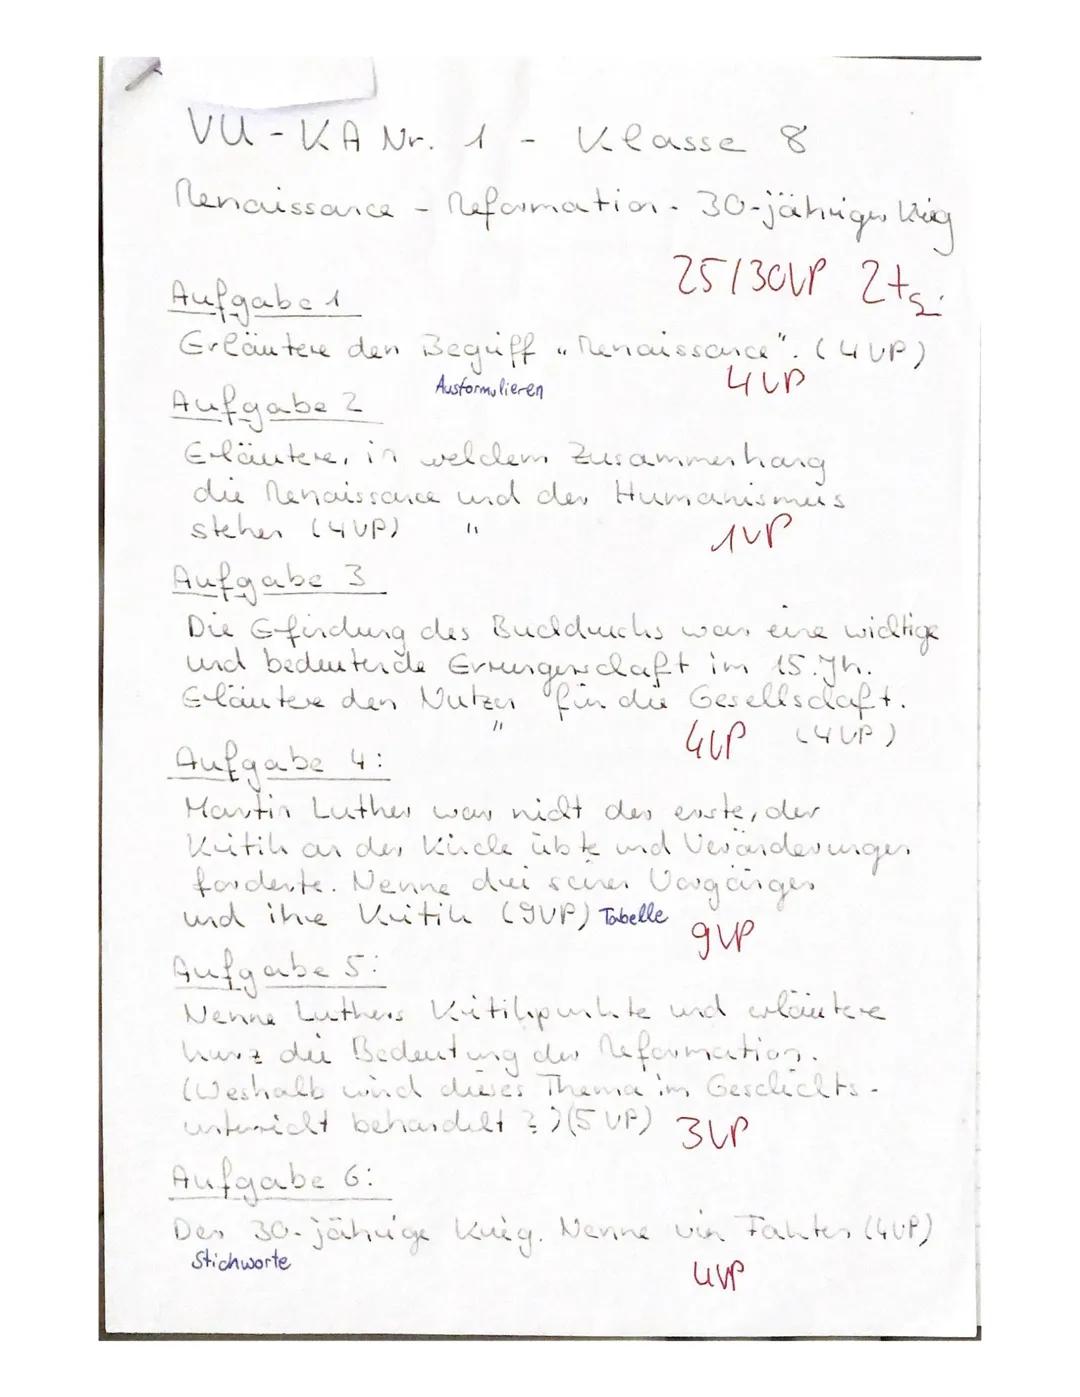 VU - KA Nr. 1 - Klasse 8
Renaissance - Reformation - 30-jähriger Krieg
25/30VP 2+
Aufgabe 1
Erläutere den Begriff „Renaissance". (4VP)
Ausformulieren 4VP
Aufgabe 2
Erläutere, in welchem Zusammenhang
die Renaissance und der Humanismus
stehen (4VP) " 1VP
Aufgabe 3
Die Erfindung des Buchdrucks war eine wichtige
und bedeutende Errungenschaft im 15. Jh.
Erläutere den Nutzen für die Gesellschaft.
" 4VP (4VP)
Aufgabe 4:
Martin Luther war nicht der erste, der
Kritik an der Kirche übte und Veränderungen
forderte. Nenne drei seiner Vorgänger
und ihre Kritik (9VP) Tabelle 9VP
Aufgabe 5:
Nenne Luthers Kritikpunkte und erläutere
kurz die Bedeutung der Reformation.
(Weshalb wird dieses Thema im Geschichts-
unterricht behandelt?) (5VP) 3VP
Aufgabe 6:
Der 30-jährige Krieg. Nenne vier Fakten (4VP)
Stichworte 4VP